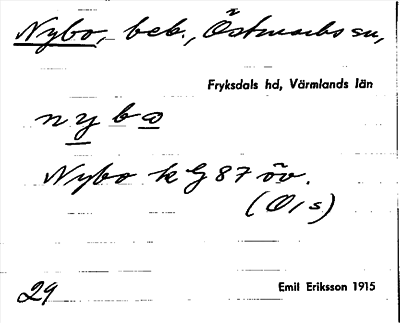 Nybo, beb., Östmarks sn,
Fryksdals hd, Värmlands län
nybo
Nybo k G 87 öv.
(O/s)
29 Emil Eriksson 1915